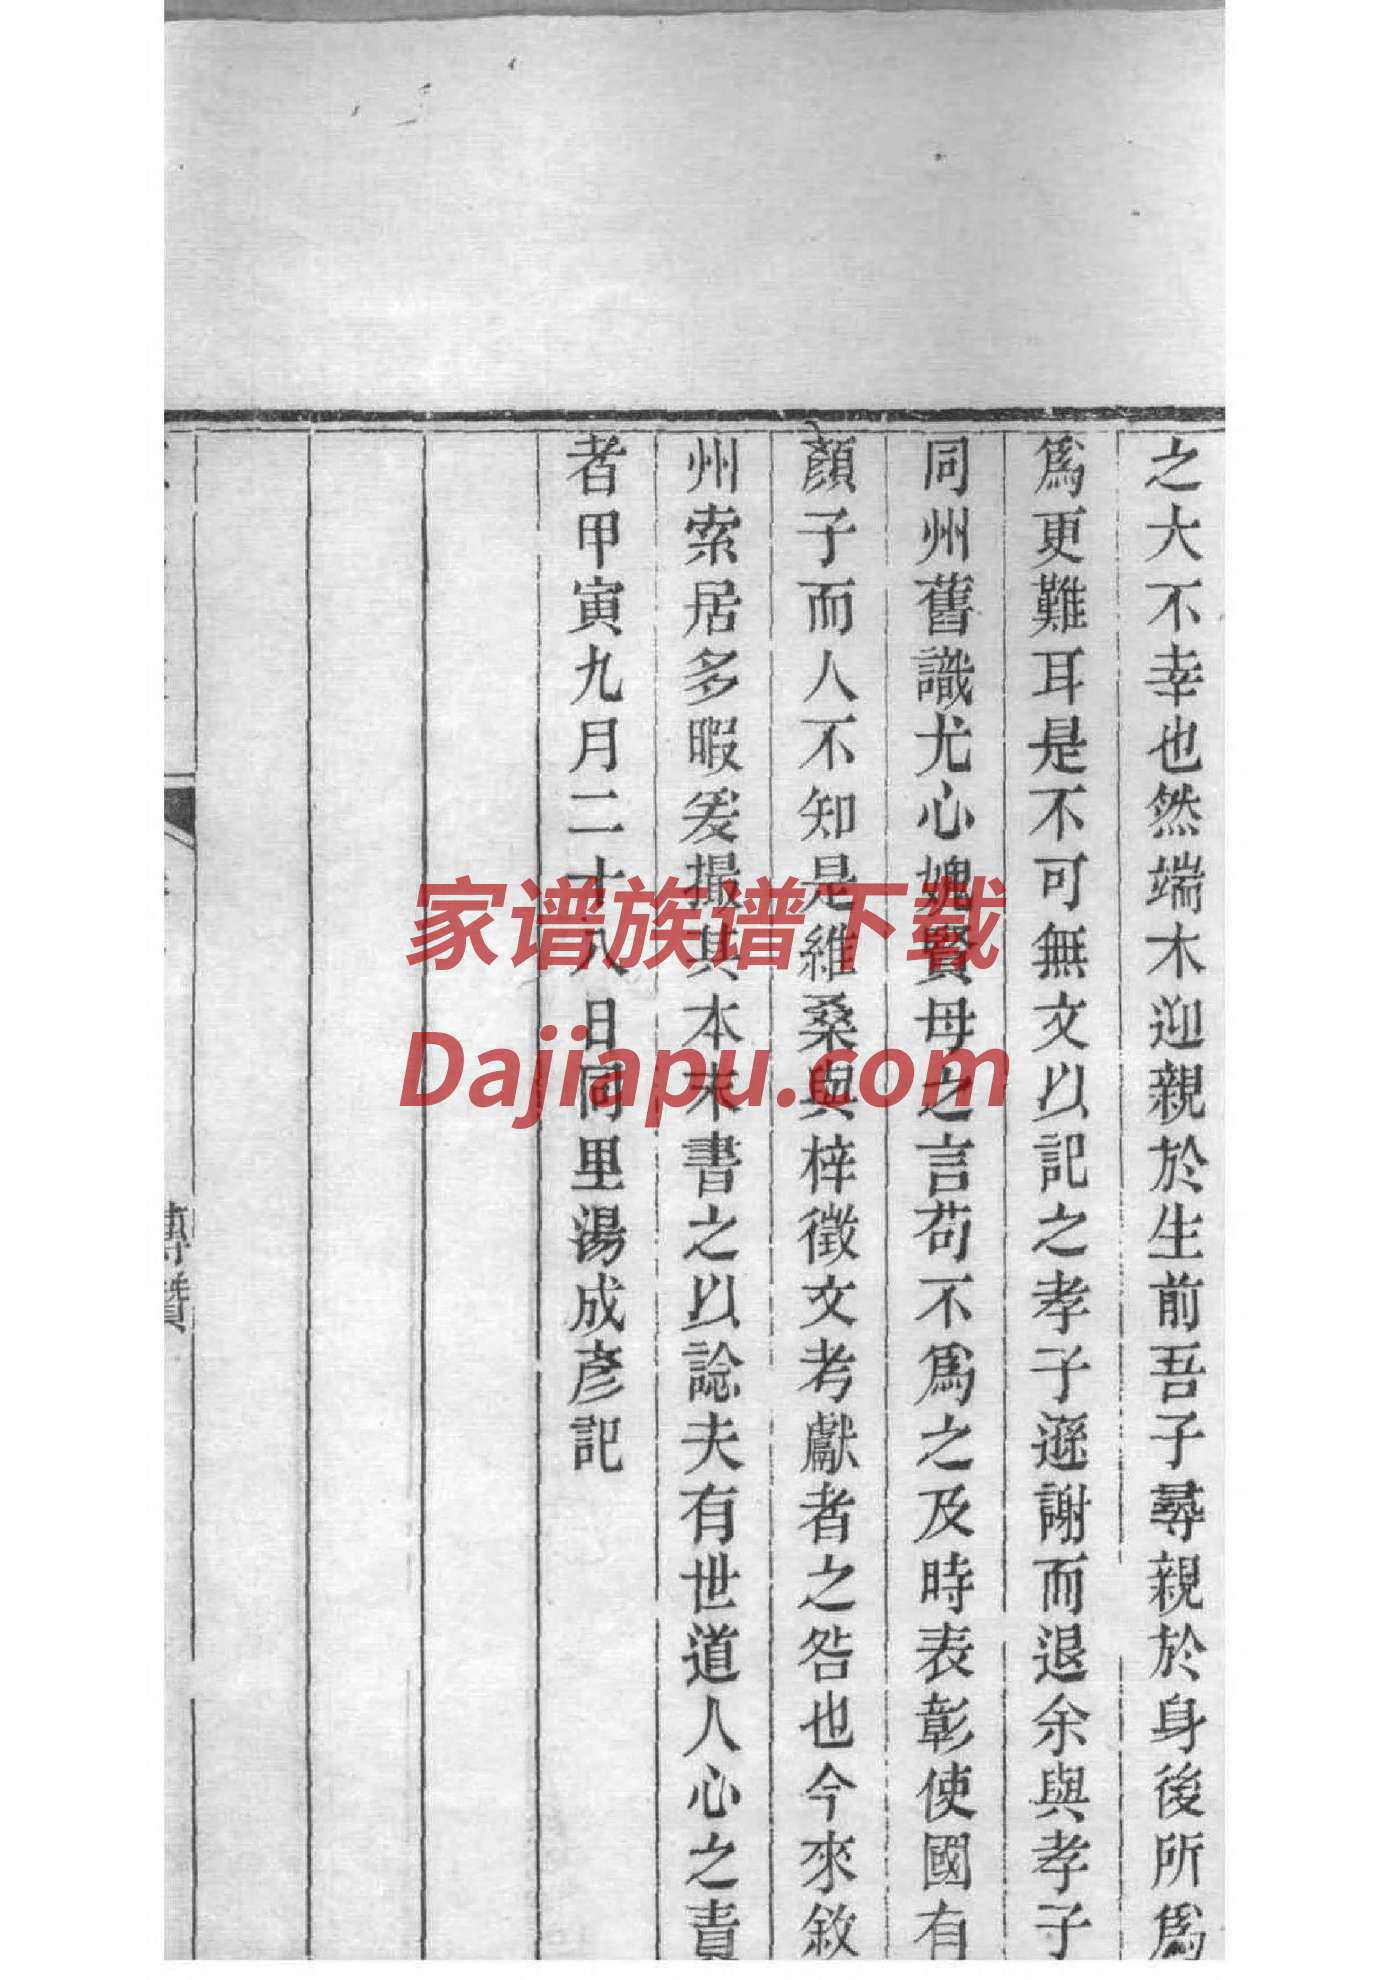 之大不幸也然端木迎親於生前吾子尋親於身後所爲
爲更難耳是不可無文以記之孝子遜謝而退余與孝子
同州舊識尤心媿賢母之言苟不爲之及時表彰使國有
顏子而人不知是維桑與梓徵文考獻者之咎也今來敘
州索居多暇爰撮其本末書之以諗夫有世道人心之責
者甲寅九月二十八日同里湯成彥記
傳贊
家谱族谱下载
Dajiapu.com